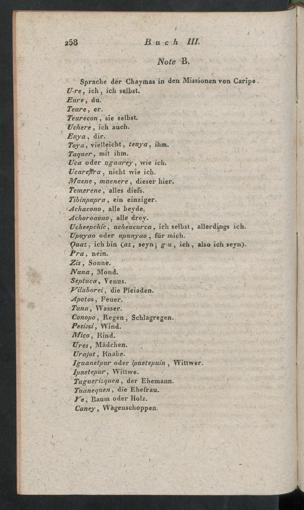 258 Buch III.
Note B.
Sprache der Chaymas in den Missionen von Caripe.
U-re, ich, ich selbst.
Eure, du.
Teure, er.
Teurecon, sie selbst.
Uchere, ich auch.
Enya, dir.
Teya, vielleicht, tenya, ihm.
Taquer, mit ihm.
Uca oder uguarey, wie ich.
Ucareſtra, nicht wie ich.
Muene, muenere, dieser hier.
Temerene, alles dieſs.
Tibinpapra, ein einziger.
Achaxono, alle beyde.
Achoroavno, alle drey.
Ucheepchic, ucheucurca, ich selbst, allerdings ich.
Upuyao oder upunyao, für mich.
Quaz, ich bin (az, seyn; g-u, ich, also ich seyn).
Pra, nein.
Zis, Sonne.
Nuna, Mond.
Septuca, Venus.
Vilaborei, die Pleiaden.
Apotos, Feuer.
Tuna, Wasser.
Conopo, Regen, Schlagregen.
Petissi, Wind.
Mico, Kind.
Ures, Mädchen.
Urajot, Knabe.
Iguanetpur oder ipnetepuin, Wittwer.
Ipnetepur, Wittwe.
Taguerisquen, der Ehemann.
Tuanequen, die Ehefrau.
Ye, Baum oder Holz.
Caney, Wagenschoppen.